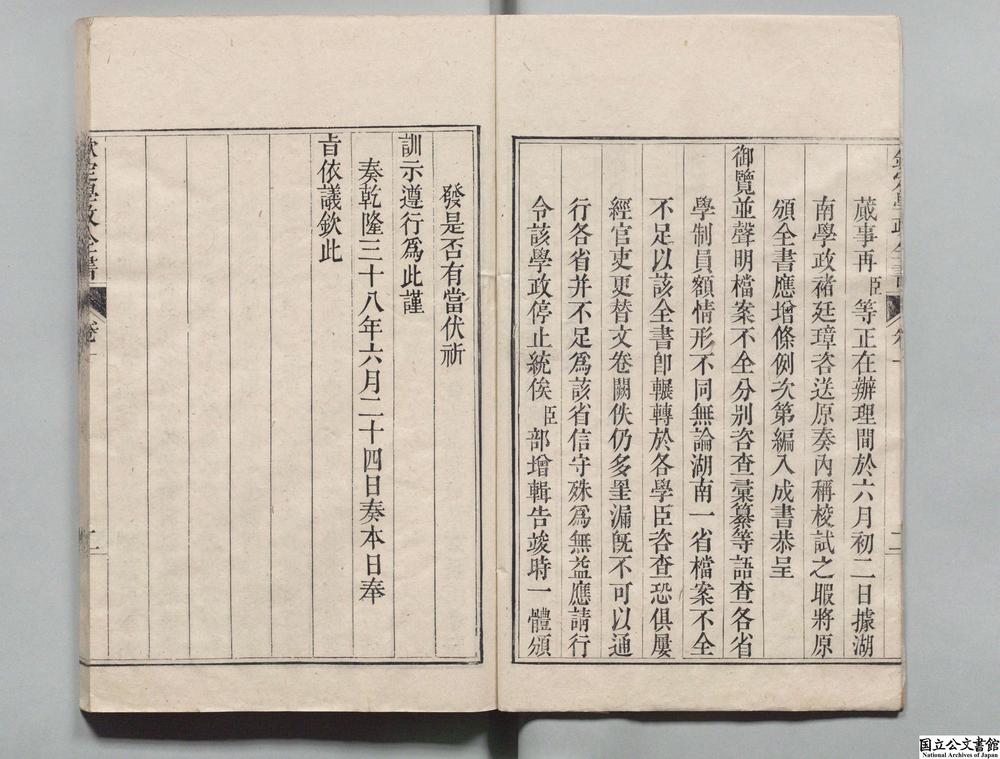 蕆事再臣等正在辦理間於六月初二日據湖
南學政褚廷璋咨送原奏內稱校試之暇將原
頒全書應增條例次第編入成書恭呈
御覽並聲明檔案不全分别咨查彚纂等語查各省
學制員額情形不同無論湖南一省檔案不全
不足以該全書卽輾轉於各學臣咨查恐俱屢
經官吏更替文卷闕佚仍多罣漏旣不可以通
行各省并不足爲該省信守殊爲無益應請行
令該學政停止統俟臣部增輯告竣時一體頒
發是否有當伏祈
訓示遵行爲此謹
奏乾隆三十八年六月二十四日奏本日奉
旨依議欽此
欽定學政全書
卷一
二
国立公文書館
National Archives of Japan